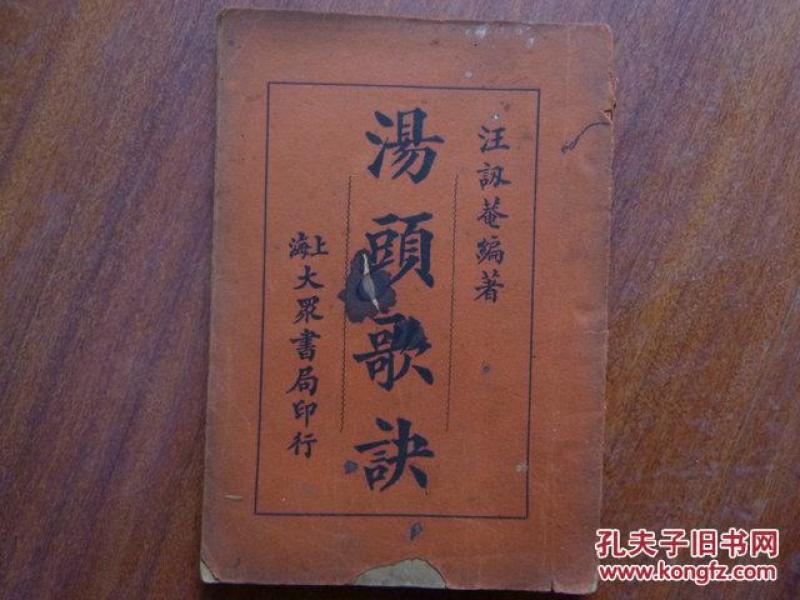 汪訒菴編著
湯頭歌訣
上海大眾書局印行
孔夫子旧书网
www.kongfz.com